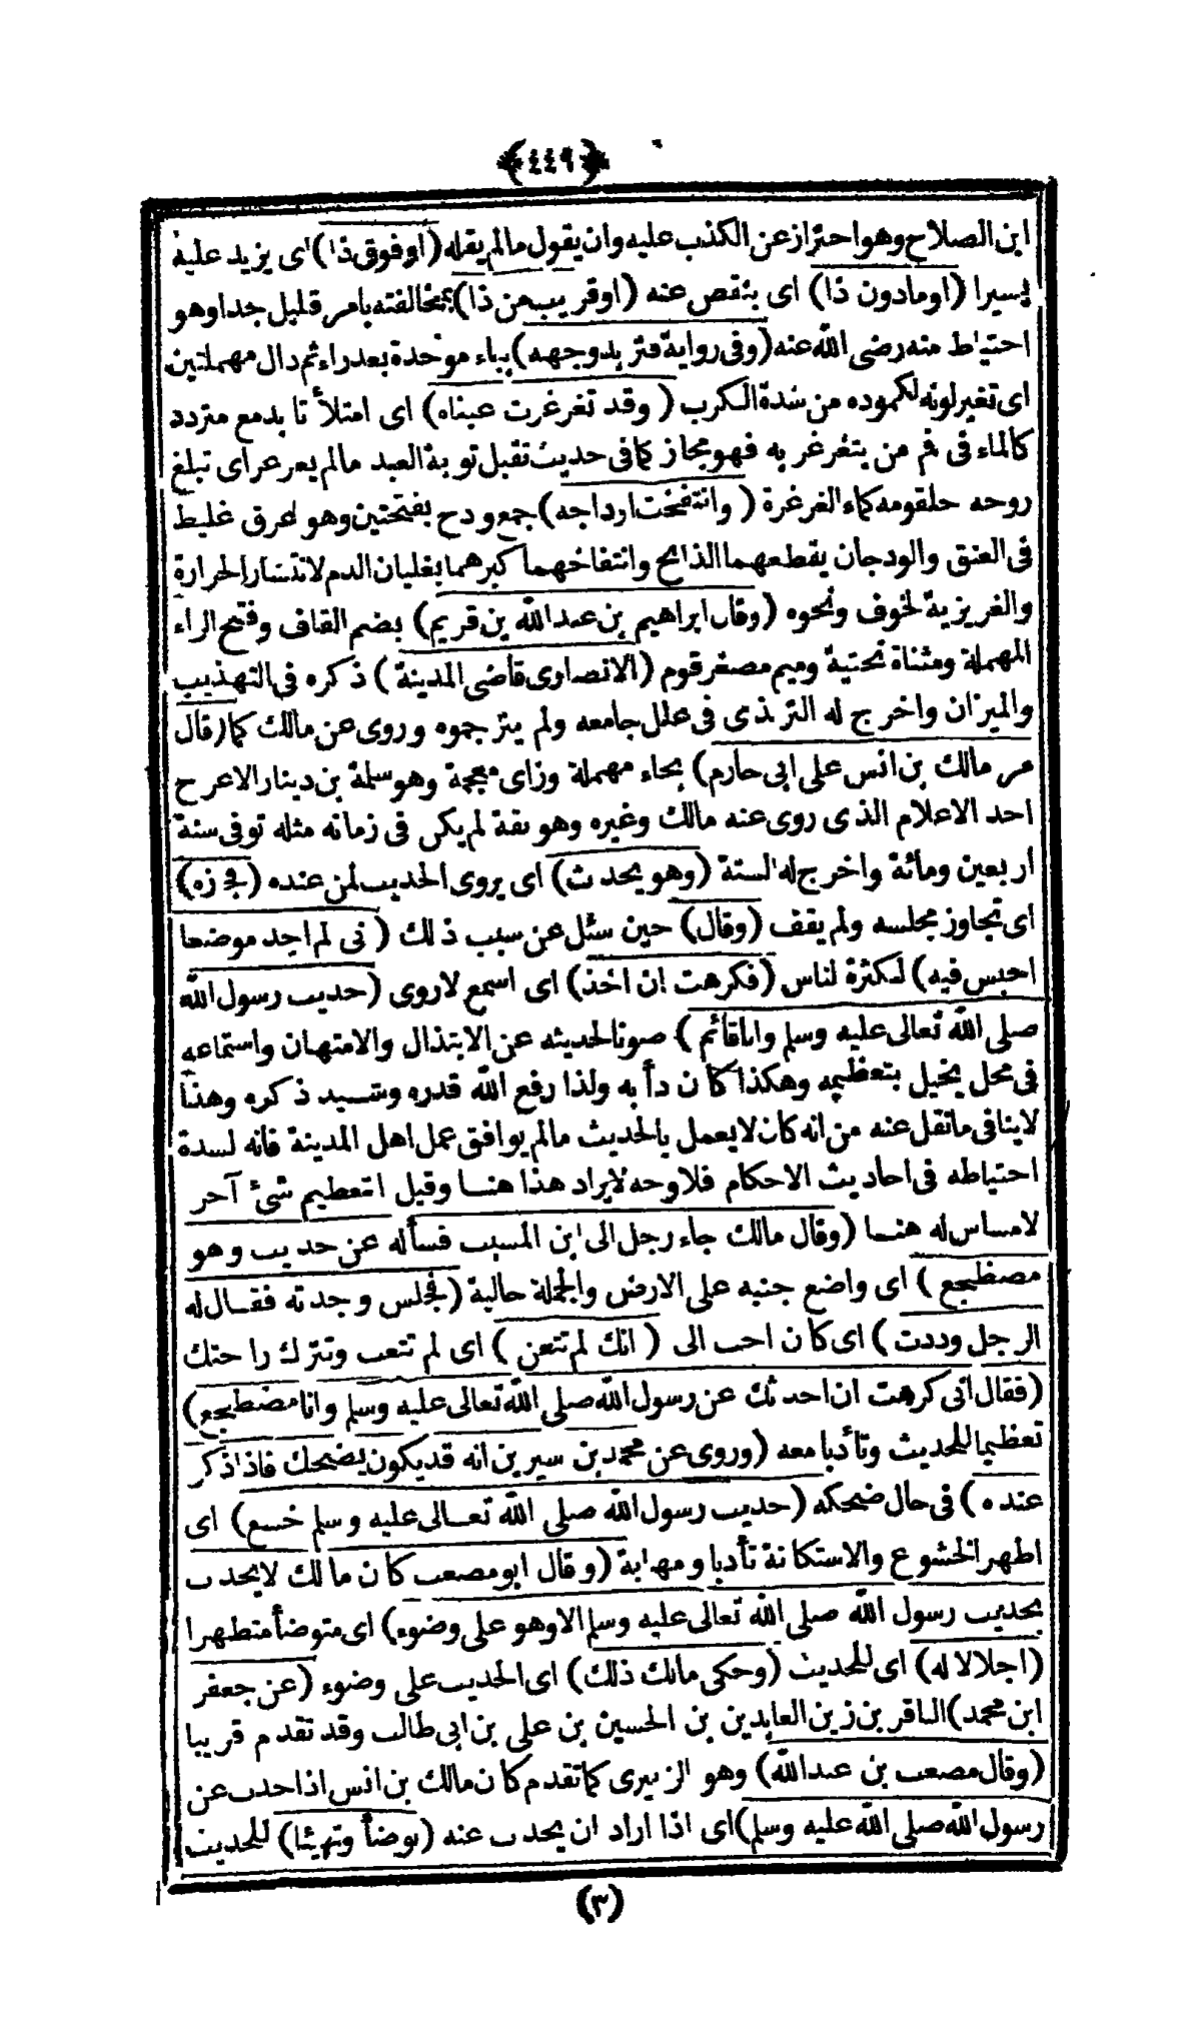 ﴿٤٤٩﴾
ابن الصلاح وهو احتراز عن الكذب عليه وان يقول مالم يقله (اوفوق ذا) اى يزيد عليه
يسيرا (اومادون ذا) اى ينقص عنه (اوقريب من ذا) بمخالفته بامر قليل جدا وهو
احتياط منه رضى الله عنه (وفى رواية فتربد وجهه) بباء موحدة بعد راء ثم دال مهملتين
اى تغير لونه لكموده من شدة الكرب (وقد تغرغرت عيناه) اى امتلأ تا بدمع متردد
كالماء فى فم من يتغرغر به فهو مجاز كما فى حديث تقبل توبة العبد مالم يغرغر اى تبلغ
روحه حلقومه كماء الغرغرة (وانتفخت اوداجه) جمع ودج بفتحتين وهو لعرق غليظ
فى العنق والودجان يقطعهما الذابح وانتفاخهما كبرهما بغليان الدم لانتشار الحرارة
والغريزية لخوف ونحوه (وقال ابراهيم بن عبدالله بن قريم) بضم القاف وفتح الراء
المهملة ومثناة تحتية وميم مصغر قوم (الانصارى قاضى المدينة) ذكره فى التهذيب
والميزان واخرج له الترمذى فى علل جامعه ولم يترجموه وروى عن مالك كما (قال
مر مالك بن انس على ابى حازم) بحاء مهملة وزاى معجمة وهو سلمة بن دينار الاعرج
احد الاعلام الذى روى عنه مالك وغيره وهو ثقة لم يكن فى زمانه مثله توفى سنة
اربعين ومائة واخرج له الستة (وهو يحدث) اى يروى الحديث لمن عنده (فجازه)
اى تجاوز مجلسه ولم يقف (وقال) حين سئل عن سبب ذلك (انى لم اجد موضعا
اجلس فيه) لكثرة لناس (فكرهت ان اخذ) اى اسمع لاروى (حديث رسول الله
صلى الله تعالى عليه وسلم وانا قائم) صونا لحديثه عن الابتذال والامتهان واستماعه
فى محل يخيل بتعظيمه وهكذا كان دأبه ولذا رفع الله قدره وشيد ذكره وهذا
لاينافى مانقل عنه من انه كان لايعمل بالحديث مالم يوافق عمل اهل المدينة فانه لشدة
احتياطه فى احاديث الاحكام فلا وجه لايراد هذا هنا وقيل التعظيم شئ آخر
لامساس له هنا (وقال مالك جاء رجل الى ابن المسيب فسأله عن حديث وهو
مضطجع) اى واضع جنبه على الارض والجملة حالية (فجلس وحدثه فقال له
الرجل وددت) اى كان احب الى (انك لم تتعن) اى لم تتعب وتترك راحتك
(فقال انى كرهت ان احدثك عن رسول الله صلى الله تعالى عليه وسلم وانا مضطجع)
تعظيما للحديث وتأدبا معه (وروى عن محمد بن سيرين انه قد يكون يضحك فاذا ذكر
عنده) فى حال ضحكه (حديث رسول الله صلى الله تعالى عليه وسلم خشع) اى
اظهر الخشوع والاستكانة تأدبا ومهابة (وقال ابو مصعب كان مالك لايحدث
بحديث رسول الله صلى الله تعالى عليه وسلم الا وهو على وضوء) اى متوضأ متطهرا
(اجلالا له) اى للحديث (وحكى مالك ذلك) اى الحديث على وضوء (عن جعفر
ابن محمد) الباقر بن زين العابدين بن الحسين بن على بن ابى طالب وقد تقدم قريبا
(وقال مصعب بن عبدالله) وهو الزبيرى كما تقدم كان مالك بن انس اذا حدث عن
رسول الله صلى الله عليه وسلم) اى اذا اراد ان يحدث عنه (توضأ وتهيئا) للحديث
(٣)